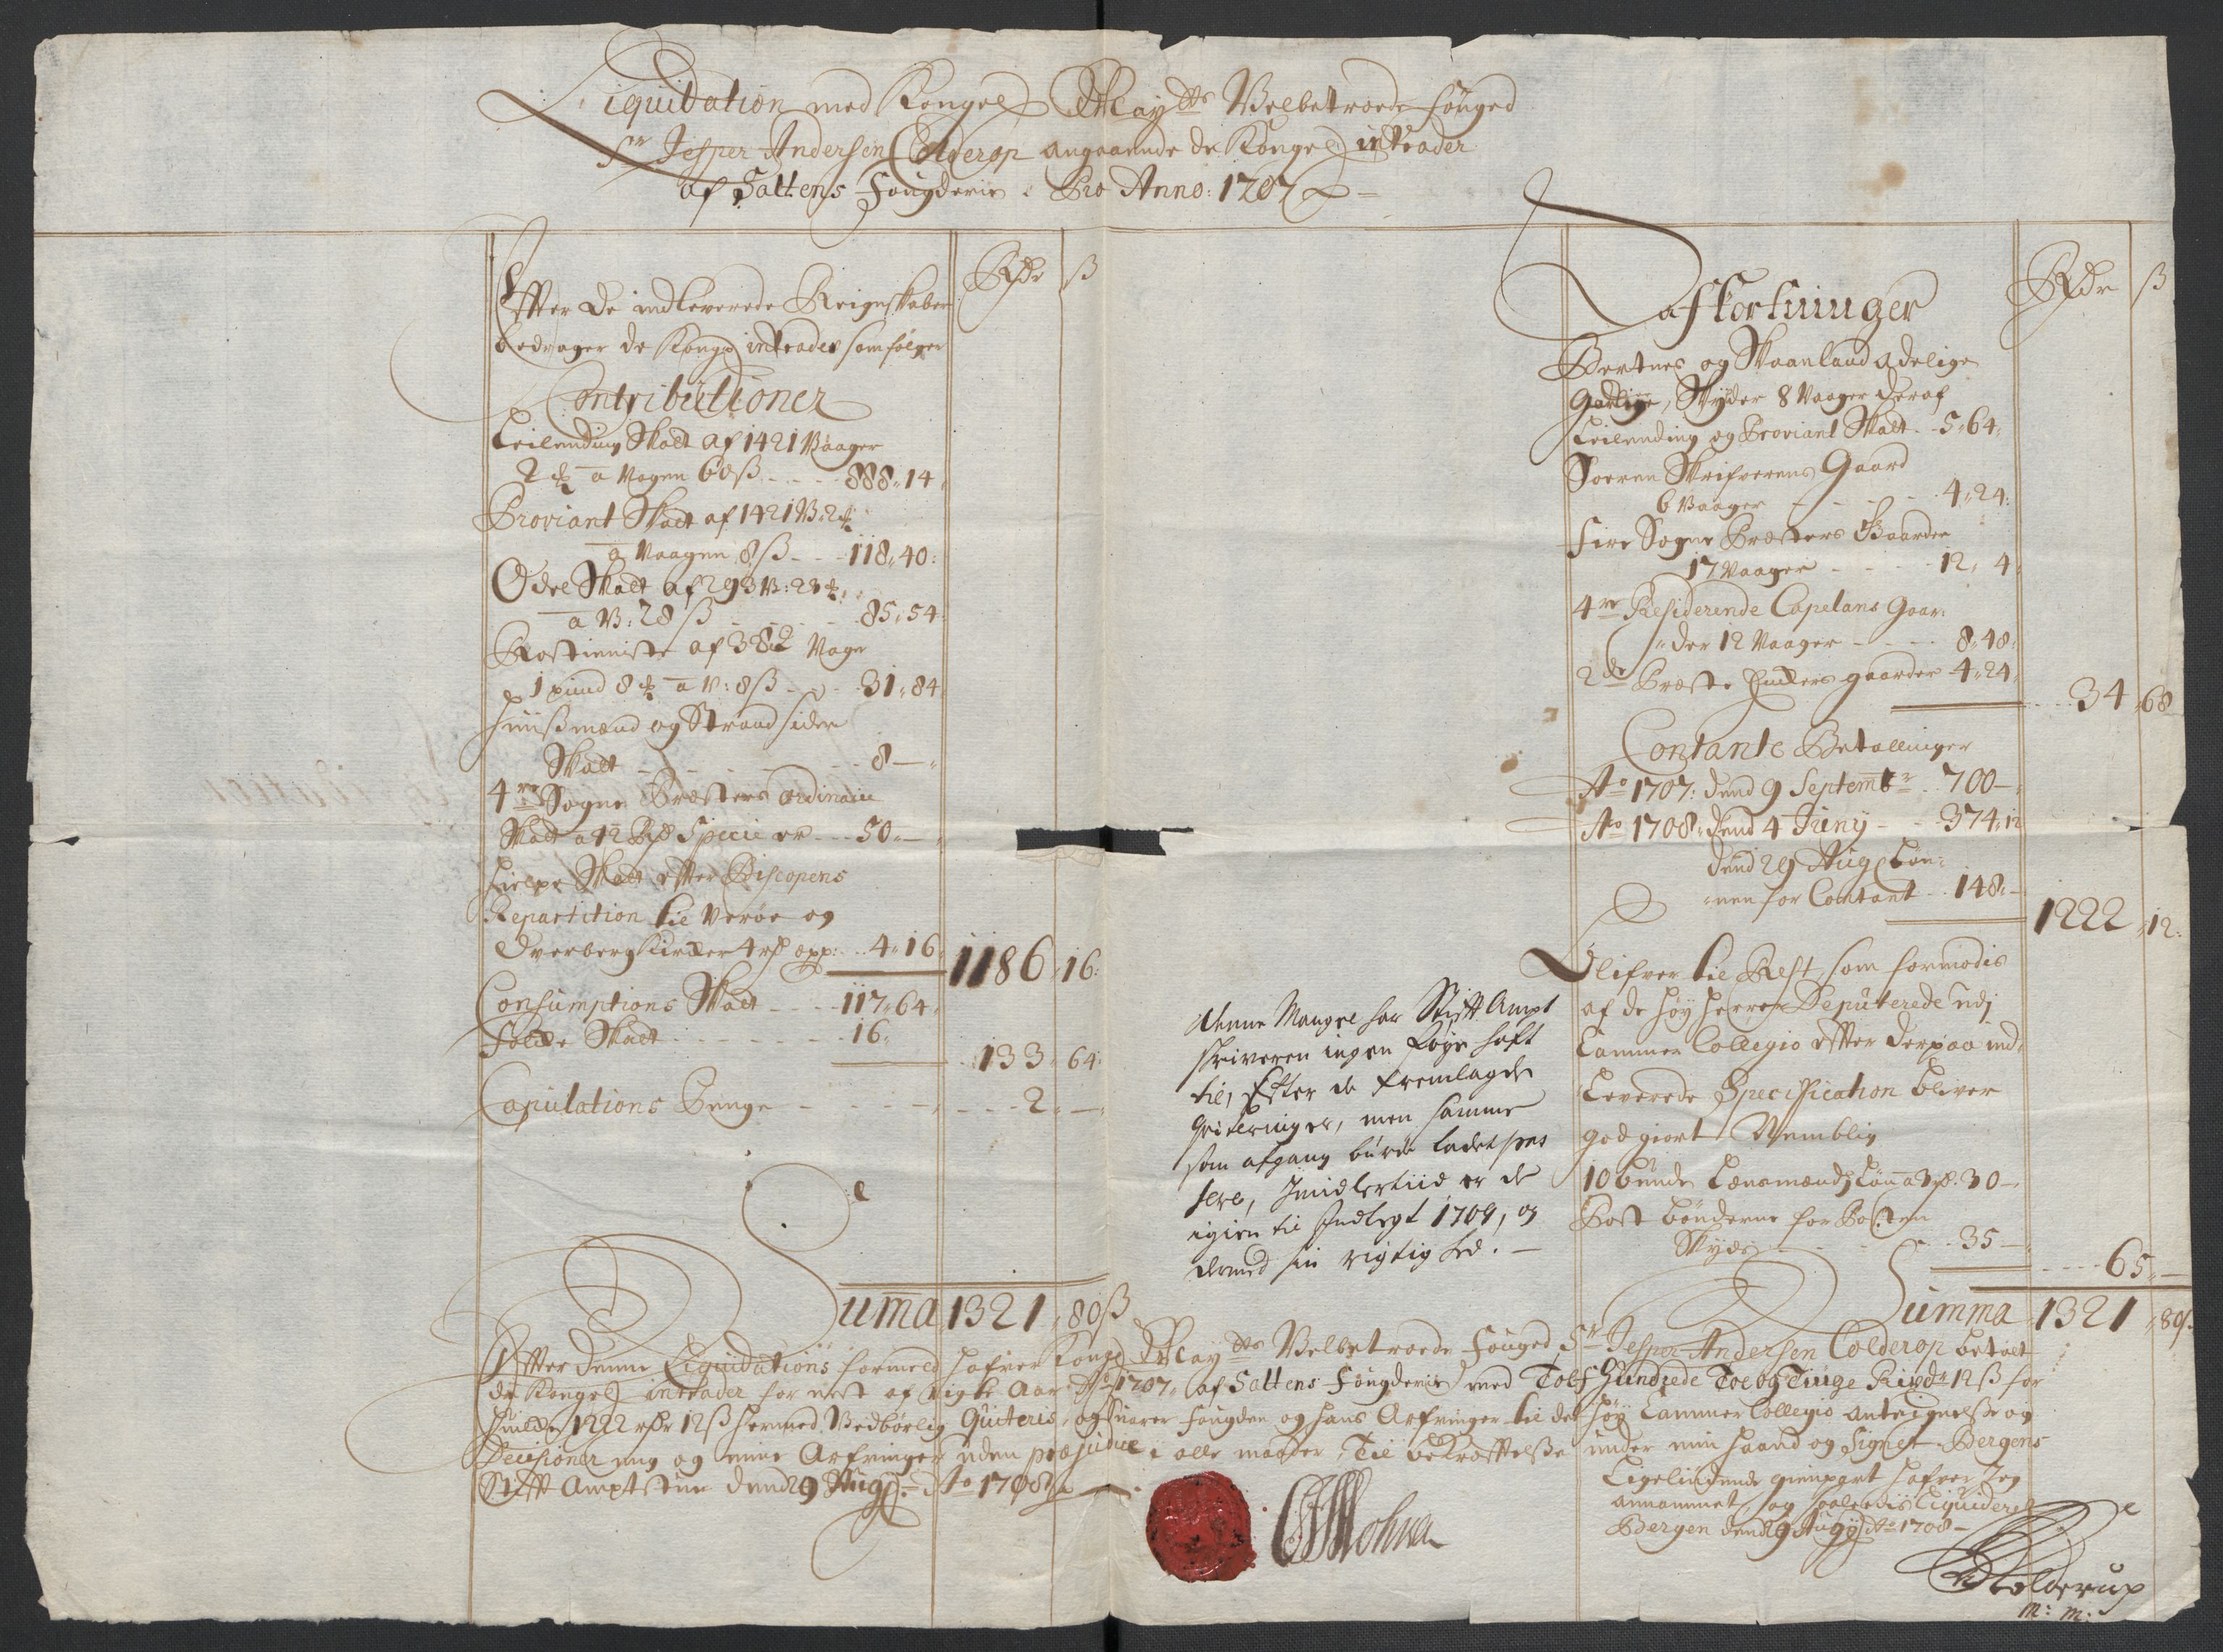 Liquidation med Kongel Mayts Velbetroede fouged
Sr Jesper Andersen Colderop angaaende de Kongel intrader
af Saltens Fougderie Pro Anno: 1707
Rdr ß
Efter de indleverede Reigenskaber
bedrager de Kongl intrader som følger
Contributioner
Leilending Skatt af 1421 Vaager
2 a Vogen 60 ß 888 14
Proviant Skatt af 1421 V: 2
a Vaagen 8 ß 118 40
Odel Skatt af 293 V: 2
a V: 28 ß 85 54
Rostieniste af 382 Vager
1 pund 8 a V: 8 ß 31 84
Huußmænd og Strand sidere
Skatt 8 —
4re Sogne Præsters ordinarie
Skatt a 12 Rd Specie er 50 —
Hielpe Skatt efter Biscopens
Repartition til Verøe og
Overberg Kircker 4 rd opp: 4 16
1186 16
Consumptions Skatt 117 64
Folcke Skatt 16
133 64
Copulations Penge 2 —
Suma 1321 80 ß
Afkortninger
Rdr ß
Bertnes og Skaanland Adelige
Gaarde, Skyder 8 Vaager deraf
Leilending og Proviant Skatt 5 64
Soeren Skrifverens Gaard
6 Vaager 4 24
Fire Sogne Præsters Gaarder
17 Vaager 12 4
4re Residerende Capelans Gaar:
der 12 Vaager 8 48
2de Præste Enckers gaarder 4 24
34 68
Contante Betallinger
Ao 1707: dend 9 Septembr 700 —
Ao 1708 dend 4 Juny 374 12
dend 29 Aug Løn:
nen for Contant 148 —
1222 12
Blifver til Rest, som formodis
af de høy Herrer Deputerede udj
Cammer Collegio efter derpaa ind
Leverede Specification bliver
godgiort Nemblig
10 bunde Lensmænds Løn a 3 rd 30 —
Post bønderne for Posten
Skyds 35 —
65 —
Summa 1321 80 ß
Denne Mangel har Stift Ampt
skriveren ingen føye haft
til, Efter de fremlagde
Qviteringer, men samme
som afgang burde ladet pas
sere, Imidlertiid er de
igien til Indtegt 1709, og
dermed sin rigtighed. —
Efter denne Liquidations formeld hafver Kongl Mayts Velbetroede Fouged Sr Jesper Andersen Colderop betalt
de Kongel intrader for nest af vigte Aar Ao 1707 af Saltens Fougderie med Tolf Hundrede Toe og Tiuge Rixdr 12 ß for
huilcke 1222 rdr 12 ß hermed Vedbørlig Quiteris, og suarer fougden og hans Arfvinger til det høy Cammer Collegio Antegnelße og
Decisioner mig og mine Arfvinger uden præjudice i alle maader, Til bekræftelße under min haand og Signet. Bergens
Stift Ampt stue dend 29 Aug: Ao 1708
Ligelydende gienpart hafver Jeg
annammet, og saaledis Liquideret
Bergen dend 29 Aug Ao 1708 —
Colderup
m: m: